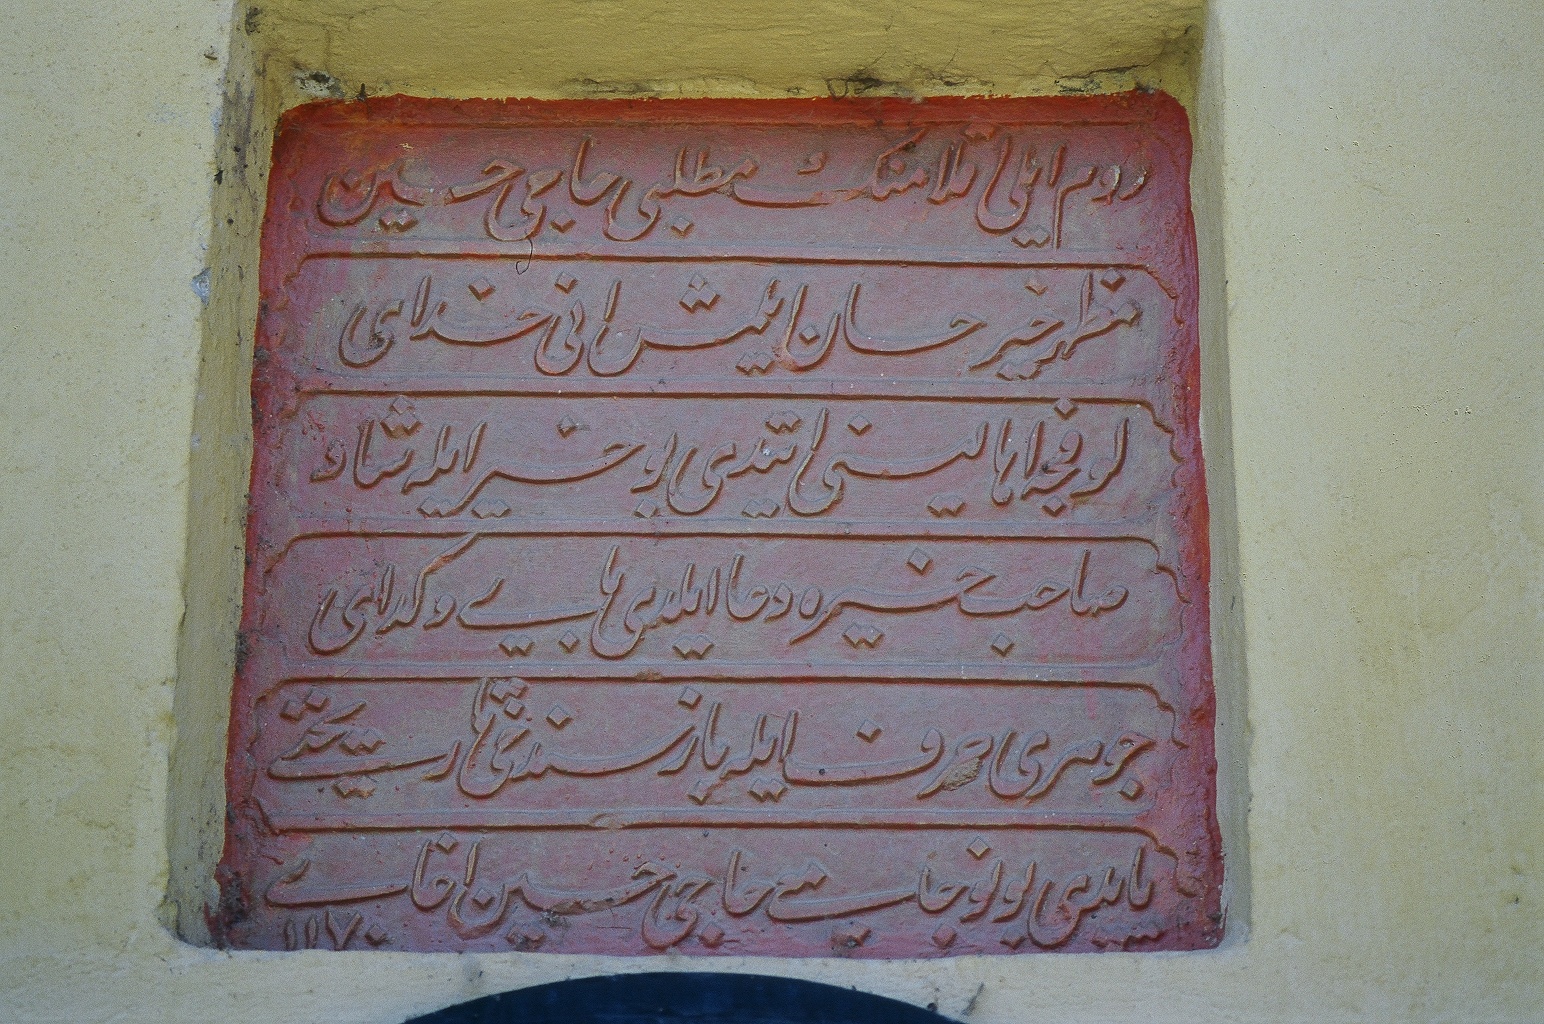 روم ایلی اقلامنك مطلبی حاجی حسین
مظهر خیر حسان ایلمش انی خدای
لوفچه اهالیسنی ایتدی بو خیر ایله شاد
صاحب خیره دعا ایلدی های و كدای
جوهری حرف ایله یازسندخی تاریخنی
یاپدی بو نو جامعی حاجی حسین اغای
١١٧٠